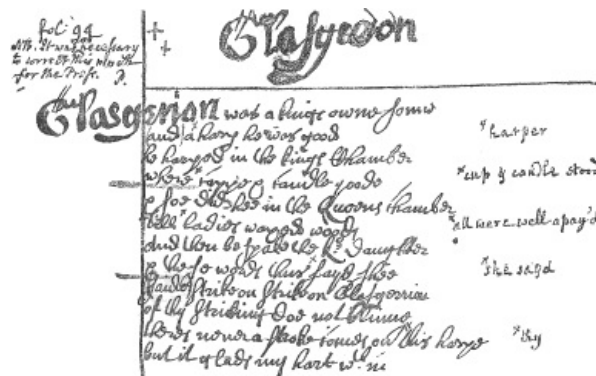 fol: 94
NB. It was necessary
to correct this much
for the Press. P.
Glasgerion
Glasgerion was a kings owne sonne
and a harper he was good
he harped in the kings Chamber
where cuppe & candle yoode
& soe did hee in the Queens chamber
till ladies waxed wood
And then bespake the Kgs Daughter
& these words thus sayd shee
Strike on Strike on Glasgerrion
of thy Striking doe not blinne
theres never a stroke comes on this harpe
but it glads my hart wth in
*harper
*cup & candle stood
*all were well apay'd
*she sayd
*thy